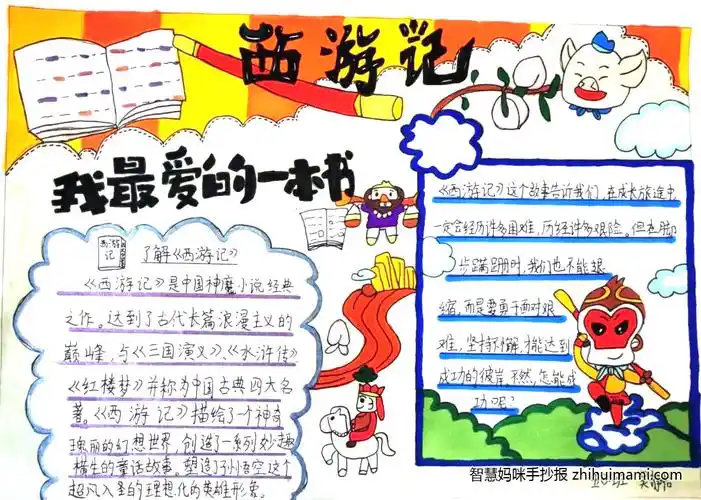 西游记
我最爱的一本书
西游记
了解《西游记》
《西游记》是中国神魔小说经典
之作。达到了古代长篇浪漫主义的
巅峰,与《三国演义》、《水浒传》
《红楼梦》并称为中国古典四大名
著。《西游记》描绘了一个神奇
瑰丽的幻想世界,创造了一系列妙趣
横生的童话故事。塑造了孙悟空这个
超凡入圣的理想化的英雄形象。
《西游记》这个故事告诉我们,在成长旅途中
一定会经历许多困难,历经许多艰险。但在脚
步蹒跚时,我们也不能退
缩,而是要勇于面对艰
难,坚持不懈,才能达到
成功的彼岸,不然,怎能成
功呢?
智慧妈咪手抄报 zhihuimami.com